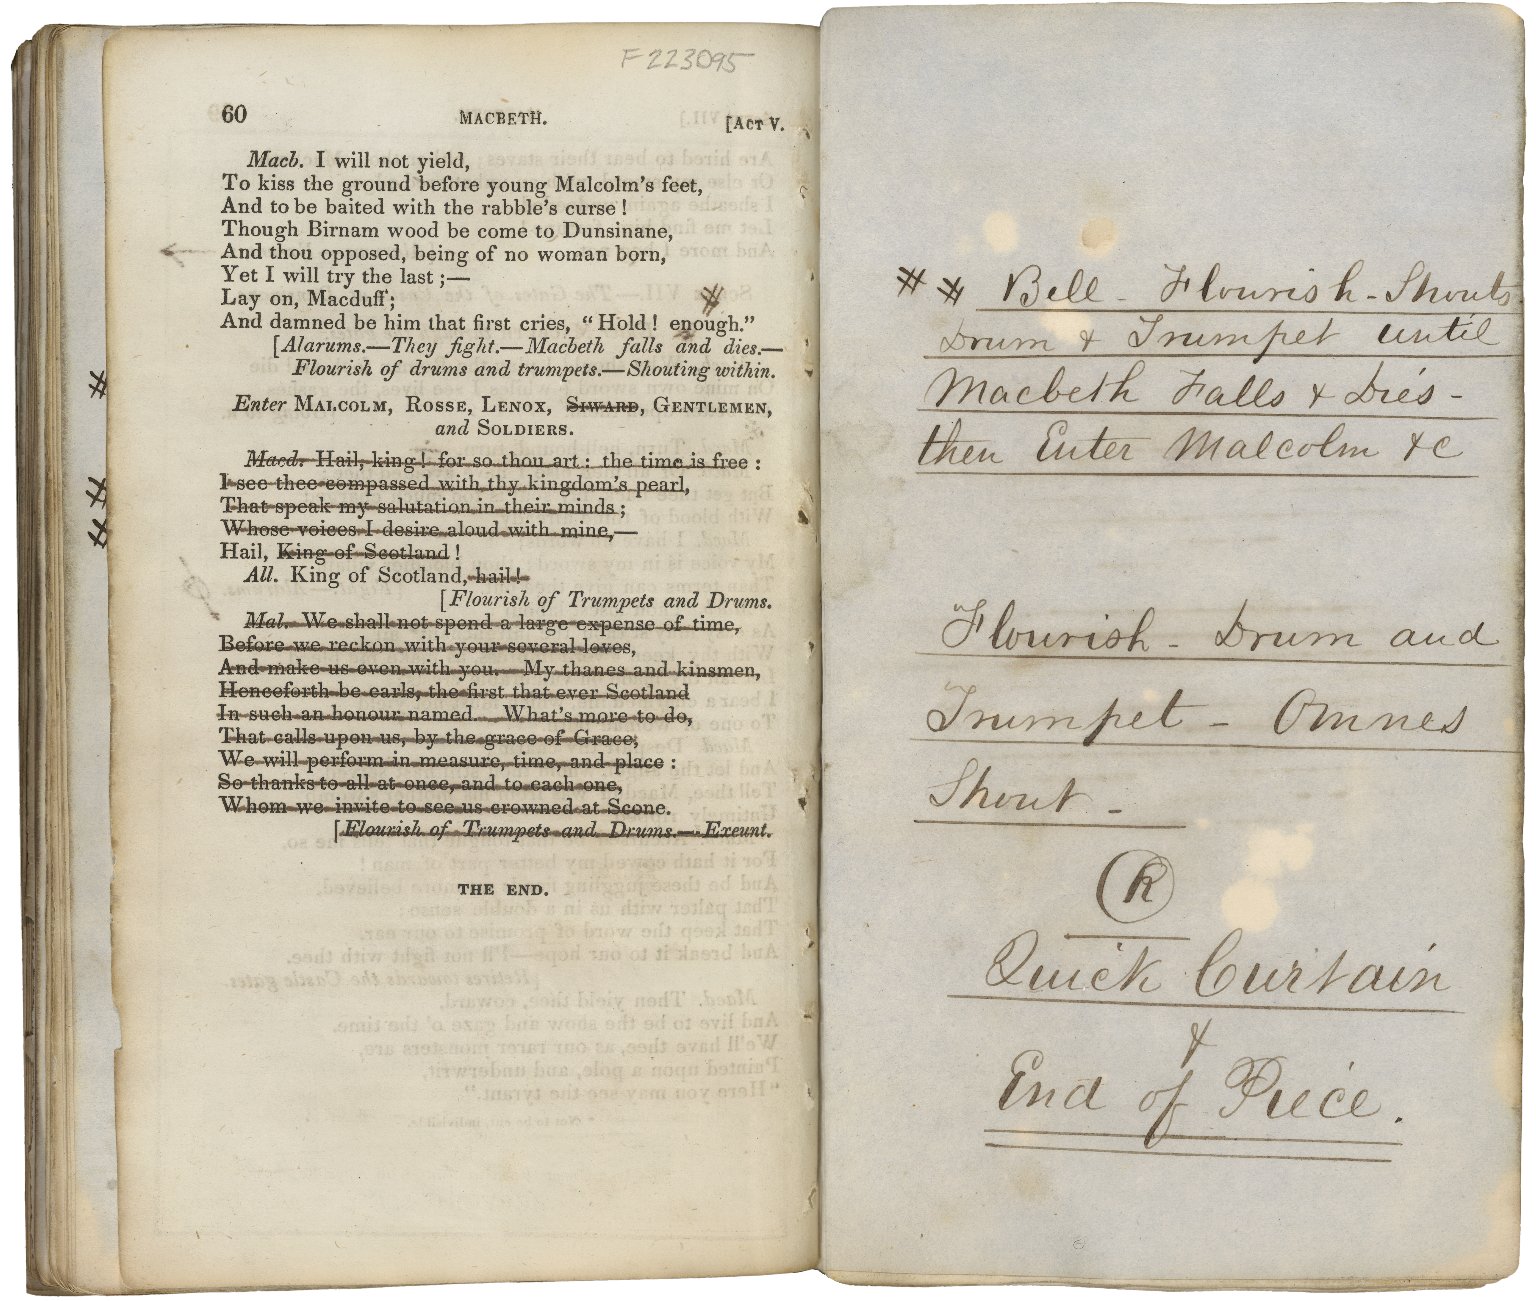 F223095
60 MACBETH. [ACT V.
Macb. I will not yield,
To kiss the ground before young Malcolm's feet,
And to be baited with the rabble's curse!
Though Birnam wood be come to Dunsinane,
And thou opposed, being of no woman born,
Yet I will try the last;—
Lay on, Macduff;
And damned be him that first cries, "Hold! enough."
[Alarums.—They fight.—Macbeth falls and dies.—
Flourish of drums and trumpets.—Shouting within.
Enter MALCOLM, ROSSE, LENOX, SIWARD, GENTLEMEN,
and SOLDIERS.
Macd. Hail, king! for so thou art: the time is free:
I see thee compassed with thy kingdom's pearl,
That speak my salutation in their minds;
Whose voices I desire aloud with mine,—
Hail, King of Scotland!
All. King of Scotland, hail!
[Flourish of Trumpets and Drums.
Mal. We shall not spend a large expense of time,
Before we reckon with your several loves,
And make us even with you. My thanes and kinsmen,
Henceforth be earls, the first that ever Scotland
In such an honour named. What's more to do,
That calls upon us, by the grace of Grace,
We will perform in measure, time, and place:
So thanks to all at once, and to each one,
Whom we invite to see us crowned at Scone.
[Flourish of Trumpets and Drums.—Exeunt.
THE END.
# # Bell - Flourish - Shouts
Drum & Trumpet until
Macbeth Falls & Dies -
then Enter Malcolm &c
Flourish - Drum and
Trumpet - Omnes
Shout -
R
Quick Curtain
&
End of Piece.